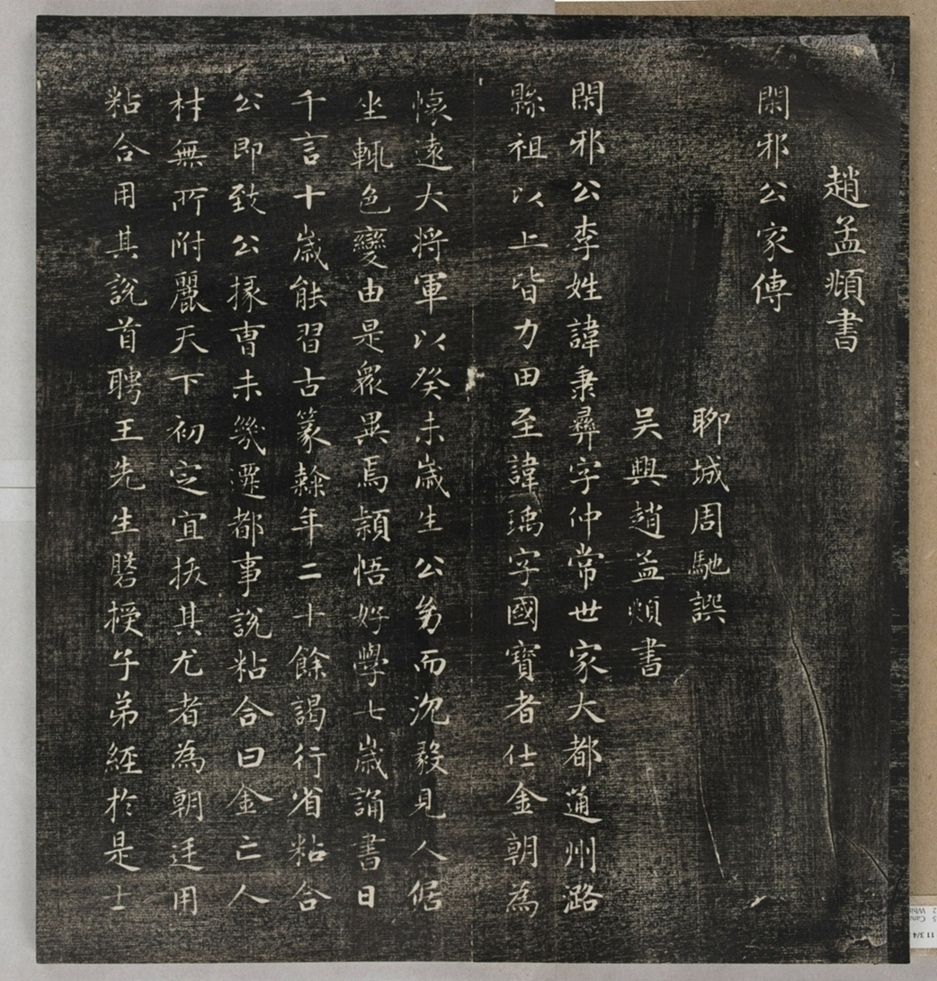 趙孟頫書
閑邪公家傳
聊城周馳譔
吴興趙孟頫書
閑邪公李姓諱秉彝字仲常世家大都通州潞
縣祖以上皆力田至諱瑀字國寶者仕金朝為
懷遠大将軍以癸未歲生公㓜而沉毅見人倨
坐輒色變由是衆異焉穎悟好學七歲誦書日
千言十歲能習古篆隸年二十餘謁行省粘合
公即致公掾曹未幾遷都事說粘合曰金亡人
材無所附麗天下初定宜拔其尤者為朝廷用
粘合用其說首聘王先生磐授子弟經於是士